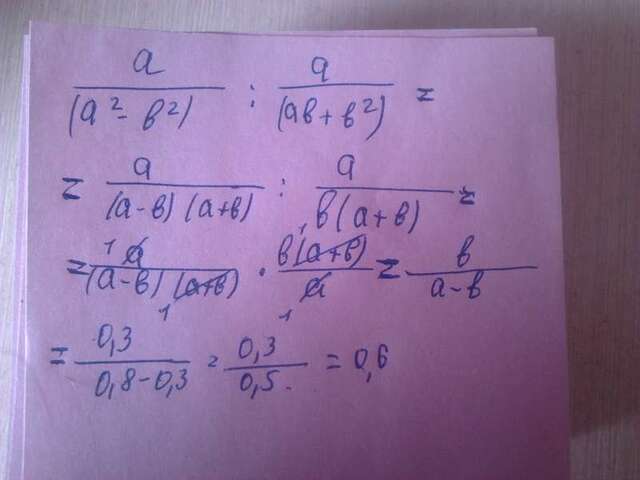 a/(a²-в²) : a/(aв+в²) =
= a/(a-в)(a+в) : a/в(a+в) =
= a/(a-в)(a+в) · в(a+в)/a = в/a-в
= 0,3/0,8-0,3 = 0,3/0,5 = 0,6